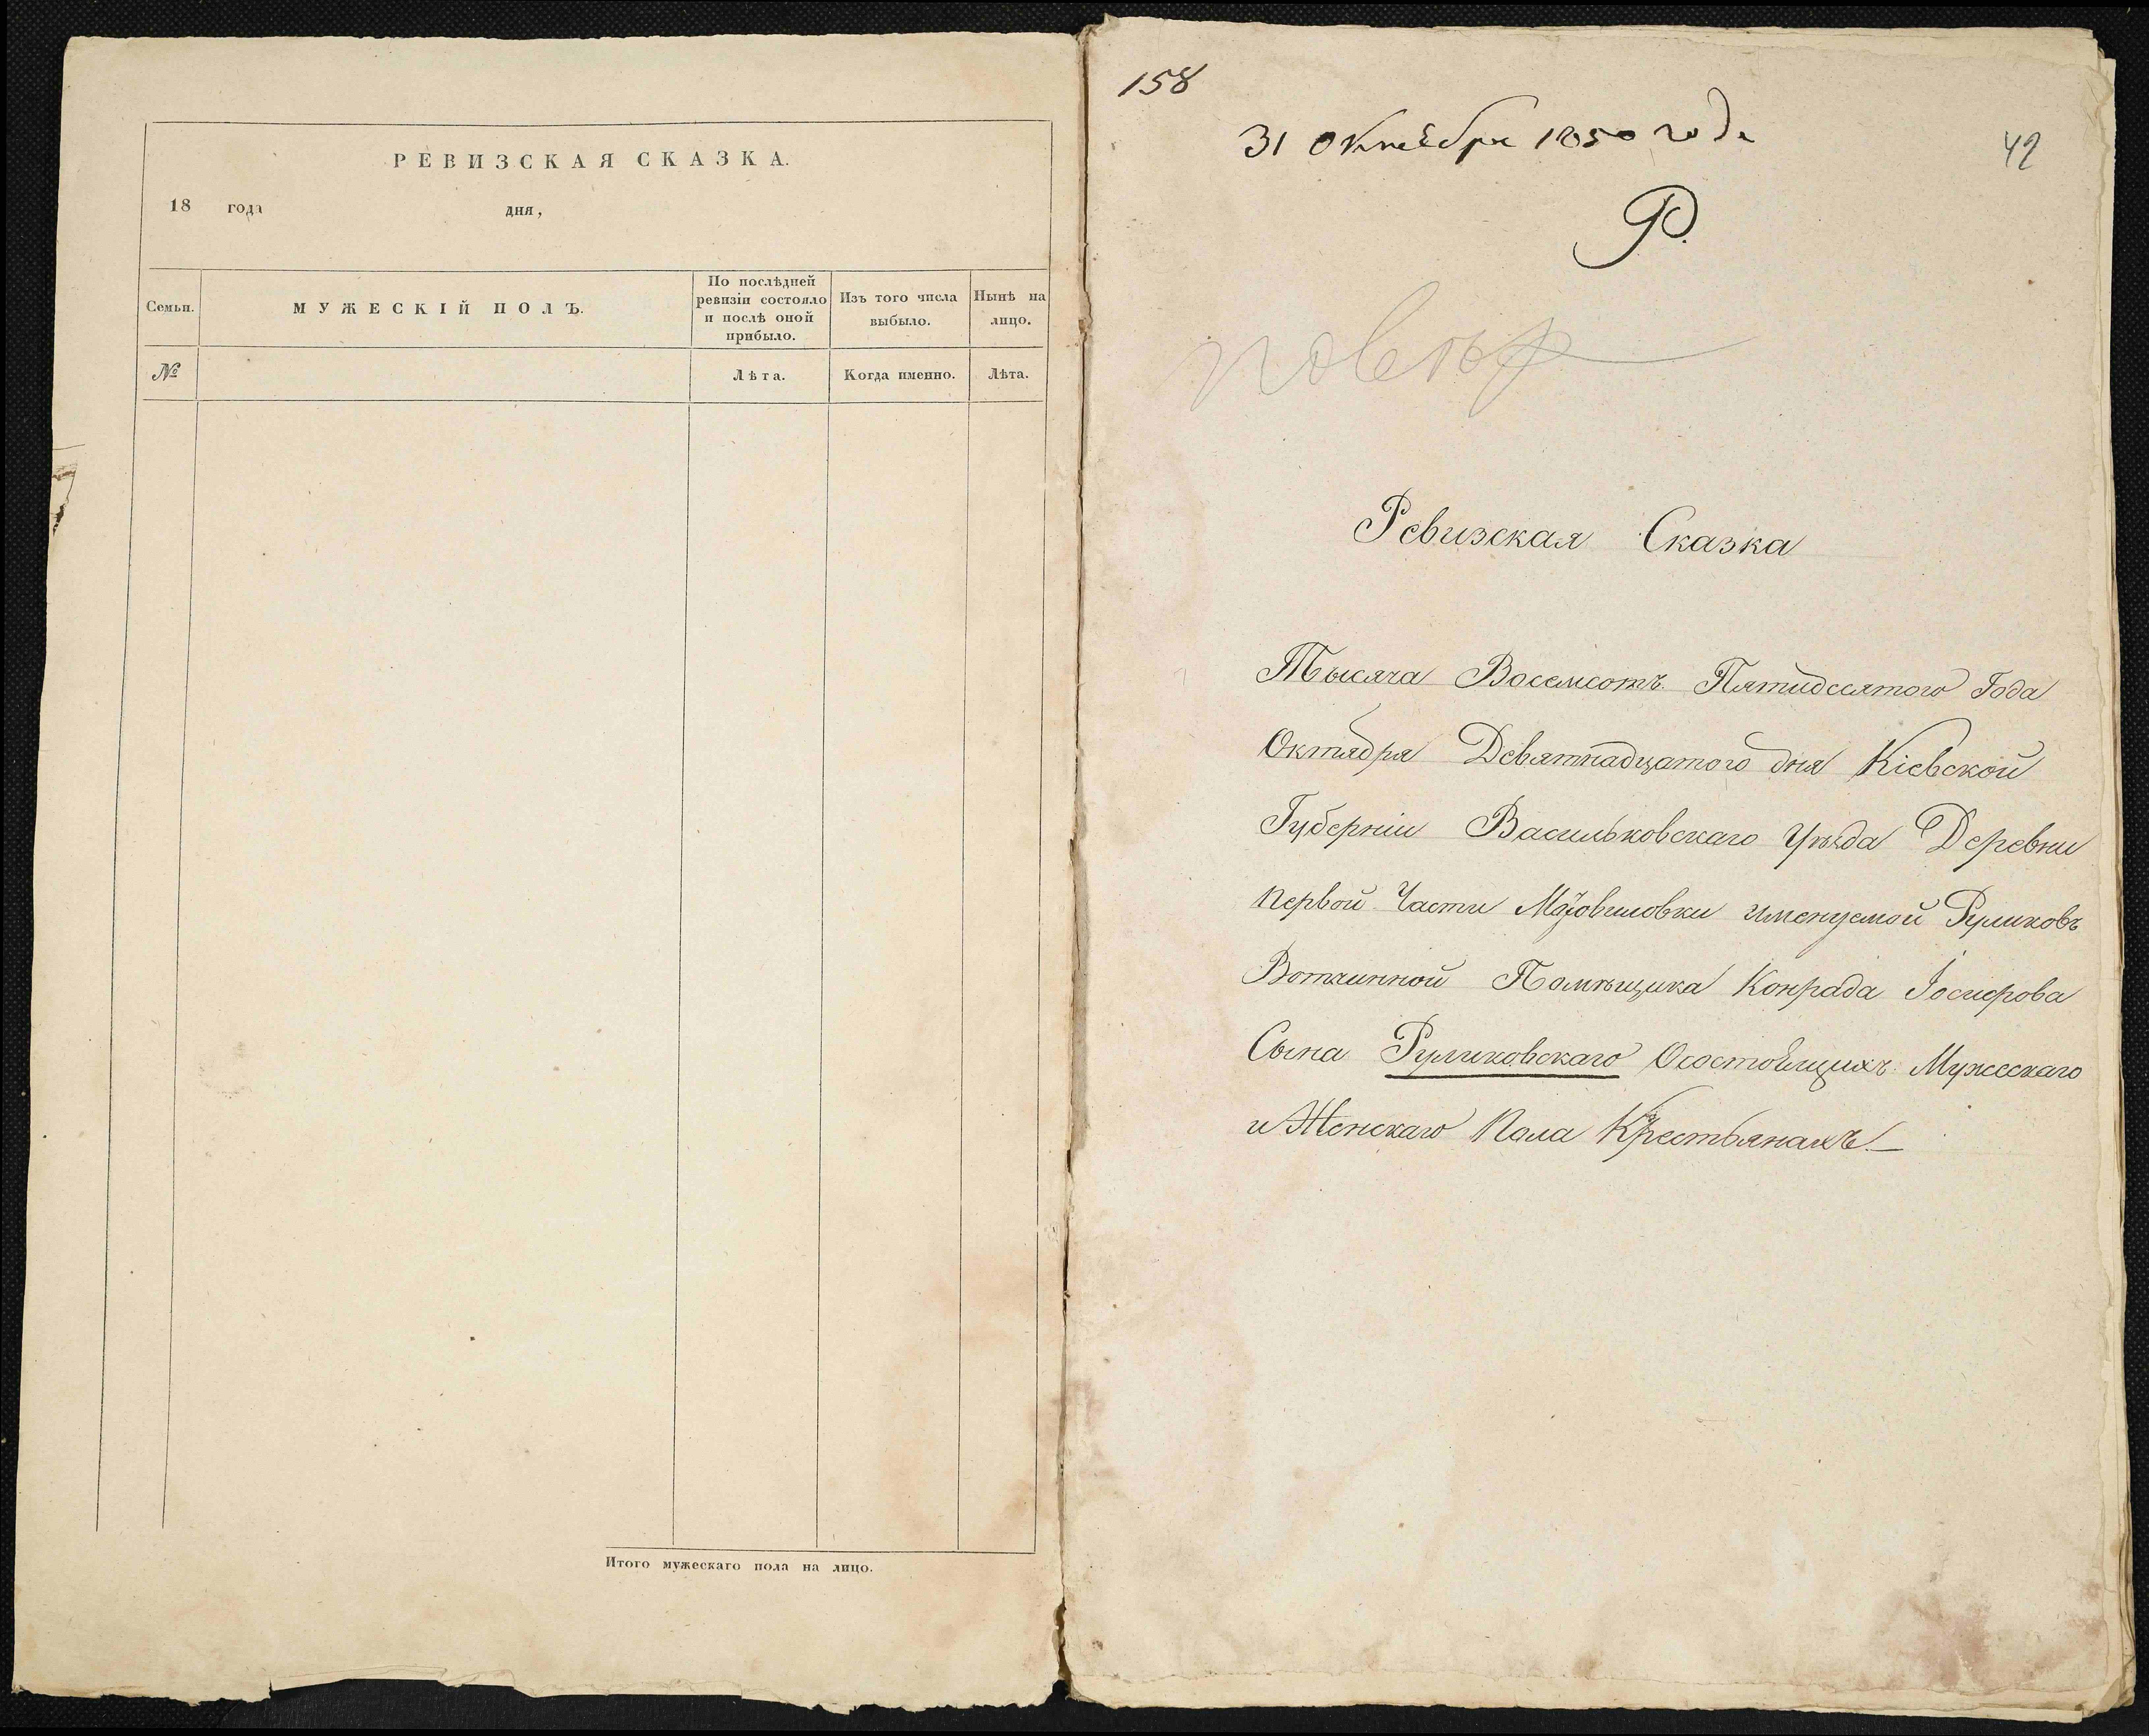 РЕВИЗСКАЯ СКАЗКА.
18 года дня,
Семьи.
МУЖЕСКІЙ ПОЛЪ.
По послѣдней
ревизіи состояло
и послѣ оной
прибыло.
Изъ того числа
выбыло.
Нынѣ на
лицо.
№
Лѣта.
Когда именно.
Лѣта.
Итого мужескаго пола на лицо.
158
31 Октября 1850 года
42
Р.
повѣр
Ревизская Сказка
Тысяча Восемсотъ Пятидесятого Года
Октября Девятнадцатого дня Кіевской
Губерніи Васильковскаго Уѣзда Деревни
первой Части Мотовиловки именуемой Руликовъ
Вотчинной Помѣщика Конрада Іосифова
Сына Руликовскаго Осостоящихъ Мужескаго
и Женскаго Пола Крестьянахъ.—